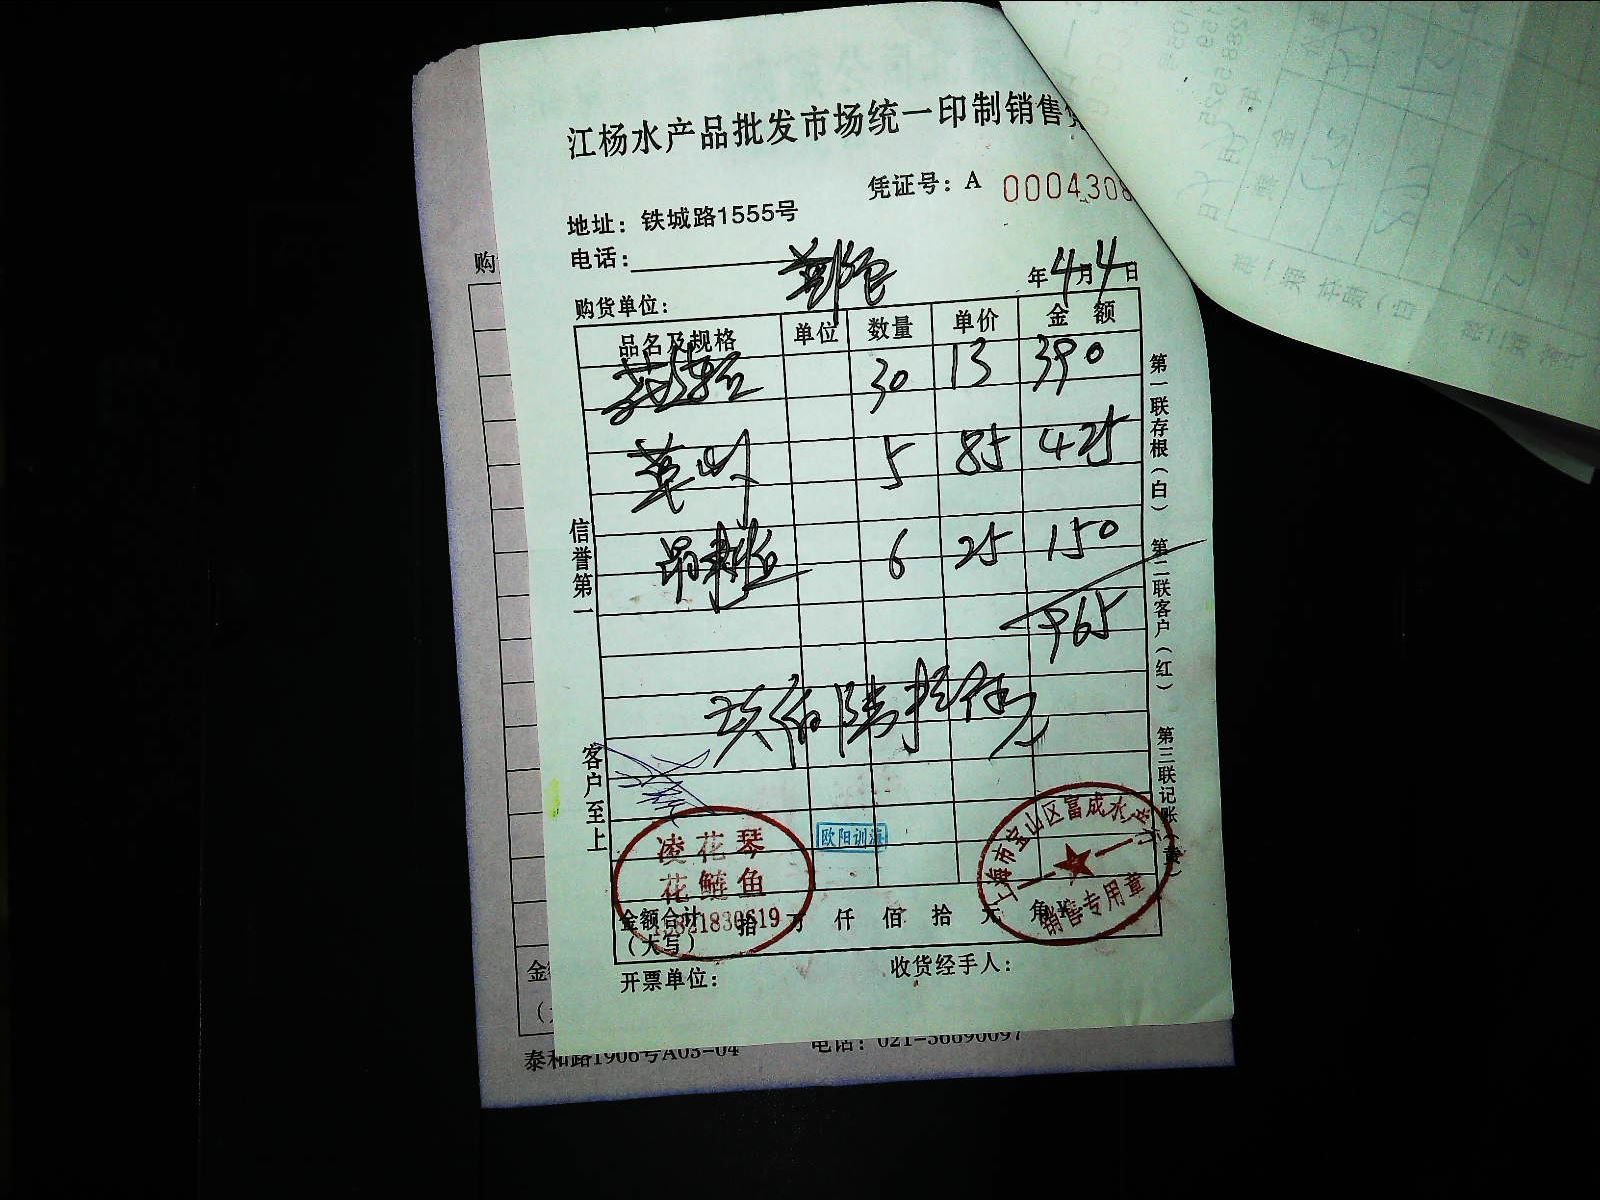 江杨水产品批发市场统一印制销售
凭证号：A 0004308
地址：铁城路1555号
电话：
年4月4日
购货单位：
品名及规格 单位 数量 单价 金额
30 13 390
5 85 425
昂 6 25 150
965
玖佰陆拾伍元
凌花琴
花鲢鱼
欧阳训海
上海市宝山区富成水产
销售专用章
金额合计 拾 万 仟 佰 拾 元 角
（大写）
开票单位：
收货经手人：
信誉第一
客户至上
第一联存根（白）
第二联客户（红）
第三联记账（黄）
购
金
泰和路1906号A03-04
电话：021-56690097